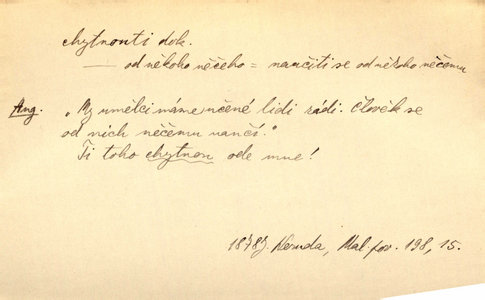 chytnouti dok.
— od někoho něčeho = naučiti se od někoho něčemu
Ang. „My umělci máme učené lidi rádi. Člověk se
od nich něčemu naučí.“
Ti toho chytnou ode mne!
1878 J. Neruda, Mal. pov. 198, 15.